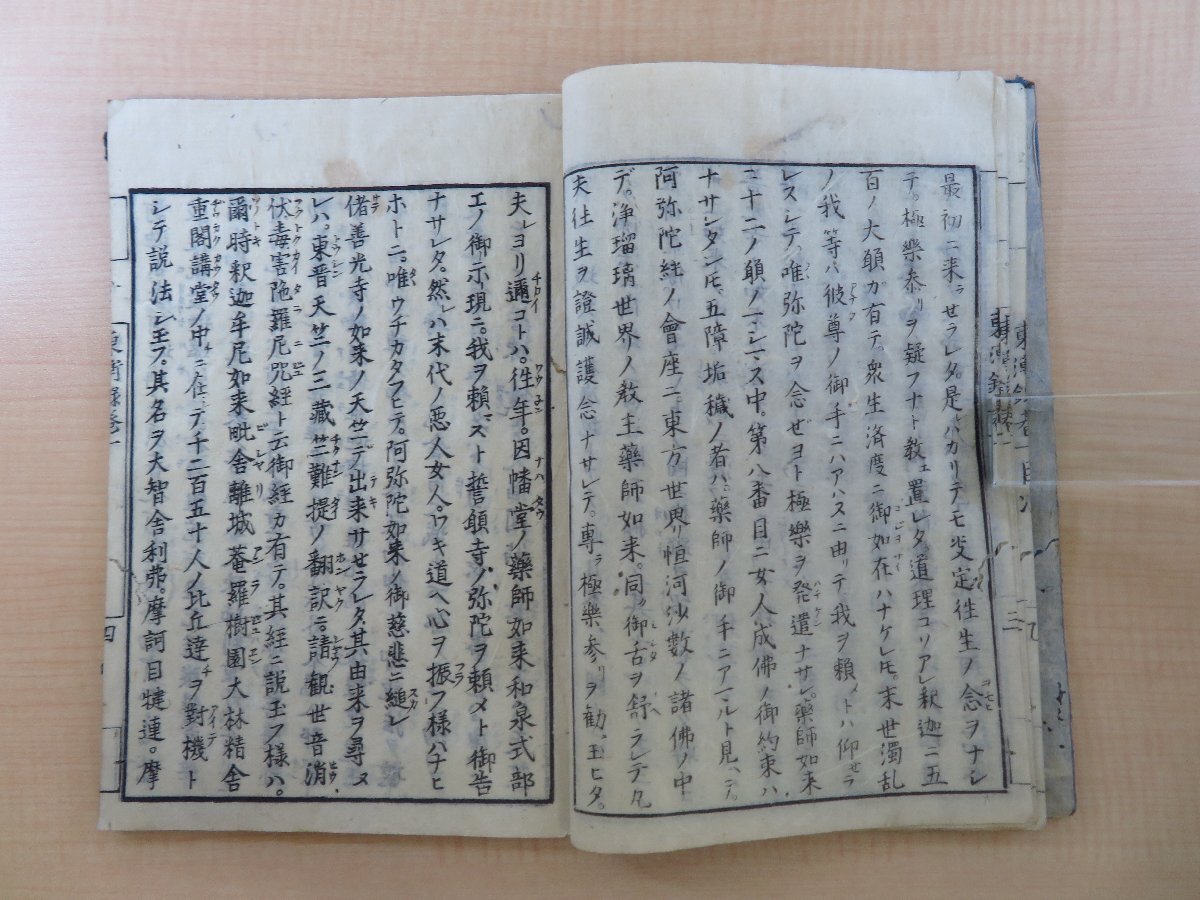 最初ニ来ラセラレタ。是バカリテモ决定往生ノ念ヲナシ
テ。極樂参リヲ疑フナト教ェ置レタ道理コソアレ釈迦ニ五
百ノ大願ガ有テ。衆生済度ニ御如在ハナケレ𪜈。末世濁乱
ノ我等ハ彼尊ノ御手ニハアハスニ由リテ我ヲ頼メトハ仰セラ
レスシテ。唯弥陀ヲ念ゼヨト極樂ヲ発遣ナサレ。藥師如来
ニ十二ノ願ノマシマス中。第八番目ニ女人成佛ノ御約束ハ
ナサレタレ𪜈。五障垢穢ノ者ハ。藥師ノ御手ニアマルト見ヘテ。
阿弥陀経ノ會座ニ。東方世界恒河沙數ノ諸佛ノ中
デ。浄瑠璃世界ノ教主藥師如来。同ク御舌ヲ舒ラレテ凡
夫往生ヲ證誠護念ナサレテ。專ラ極樂参リヲ勧メ玉ヒタ。
夫レヨリ邇コトハ。徃年因幡堂ノ藥師如来和泉式部
エノ御示現ニ。我ヲ頼ミスト誓願寺ノ弥陀ヲ頼メト御告
ナサレタ。然レハ末代ノ悪人女人。ワキ道ヘ心ヲ振フ様ハナヒ
ホトニ。唯ウチカタフヒテ。阿弥陀如来ノ御慈悲ニ縋レ
偖善光寺ノ如来ノ天竺デ出来サセラレタ。其由来ヲ尋ヌ
レハ。東晋天竺ノ三藏竺難提ノ翻訳ニ。請観世音消
伏毒害陁羅尼咒經ト云御経カ有テ。其経ニ説玉フ様ハ。
爾時釈迦牟尼如来毗舎離城菴羅樹園大林精舎
重閣講堂ノ中ニ在テ千二百五十人ノ比丘達ヲ對機ト
シテ説法シ玉フ。其名ヲ大智舎利弗。摩訶目犍連。摩